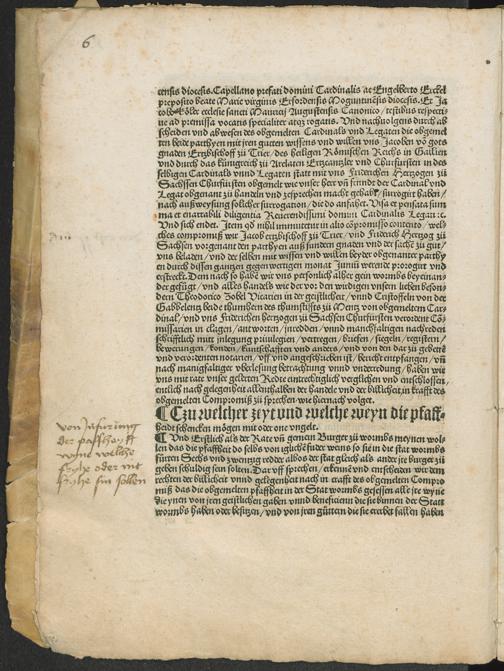 6
tensis diocesis. Capellano prefati domini Cardinalis ac Engelberto Eickel
preposito beate Marie virginis Erfordensis Moguntinensis diocesis. Et Ja
ecclesie sancti Mauricij Augustensis Canonico / testibus respecti
ue ad premissa vocatis specialiter atqz rogatis. Vnd nachuolgens durch ab
scheiden vnd abwesen des obgemelten Cardinals vnd Legaten die obgemel
ten beide parthyen mit jren gutten wissens vnd willen vns Jacoben vō gots
gnaden Ertzbischoff zu Trier / des heiligen Römischen Reichs in Gallien
vnd durch das künigreich zu Arelaten Ertzcantzler vnd Churfürsten in des
selbigen Cardinals vnnd Legaten statt mit vns Friderichen Hertzogen zu
Sachssen Churfürsten obgemelt wie vnser herr vn̄ frundt der Cardinal vnd
Legat obgenant zu handeln vnd zesprechen macht gehabt / surrogirt haben /
nach außweysung solicher surrogation / die do anfahet. Visa et pensata sum
ma et enarrabili diligentia Reuerendissimi domini Cardinalis Legati zc.
Vnd sich endet. Item qd nihil imminutum in alio cōpromisso contento / wel
ches compromiß wir Jacob ertzbischoff zu Trier / vnd Friderich Hertzog zu
Sachsen vorgenant den parthyen auß sundern gnaden vnd der sache zu gut /
vns beladen / vnd der selben mit wissen vnd willen beyder obgenanter parthy
en durch dissen gantzen gegenwertigen monat Junij werende prorogirt vnd
erstreckt. Dem nach so habē wir vns persönlich alher gein wormbs beyeinan
der gefügt / vnd alles handels wie der vor den wirdigen vnsern lieben beson
dern Theodorico Zobel Vicarien in der geistlicheit / vnnd Cristoffeln von der
Gabhelentz beide thumhern des thumstiffts zu Mentz von obgemeltem Car
dinal / vnd vns Friderichen hertzogen zu Sachsen Churfürsten verordent Cō
missarien in clagen / antworten / inredden / vnnd manchfaltigen nachreden
schrifftlich mitt inlegung priuilegien / vertregen / briefen / siegeln / registern /
beweysungen / konden / kuntschafften vnd anders / vnd von den dar zu gebenē
vnd verordenten notarien / vff vnd angeschrieben ist / bericht entpfangen / vn̄
nach manigfaltiger vberlesung betrachtung vnnd vnderredung / haben wir
vns mit rate vnser gelerten Rede eintrechtiglich verglichen vnd enschlossen /
entlich nach gelegenheit allenthalben der handele vnd der billicheit in krafft des
obgemelten Compromiß zu sprechen wie hiernach volget.
¶ Zu welcher zeyt vnd welche weyn die pfaff⸗
heid schencken mögen mit oder one vngelt.
¶ Vnd Erstlich als der Rate vn̄ gemein Burger zu wormbs meynen wol⸗
len das die pfaffheit do selbs von iglichē fuder weins so sie in die stat wormbs
fürten Sechs vnd zwentzig redder albos der stat gleich als ander ire burger zu
geben schuldig sein sollen. Dar vff sprechen / erkenne vnd entscheiden wir dem
rechten der billicheit vnnd gelegenheit nach in crafft des obgemelten Compro
miß das die obgemelten pfaffheit in der Stat wormbs gesessen alle ire weyne
die ynen von jren geistlichen gaben vnnd beneficien die sie binnen der Statt
wormbs haben oder besitzen / vnd von jren güttern die sie ererbet fallen haben
von Infurung
der pfaffheytt
wyne welche
fryhe oder nit
fryhe sin sollen